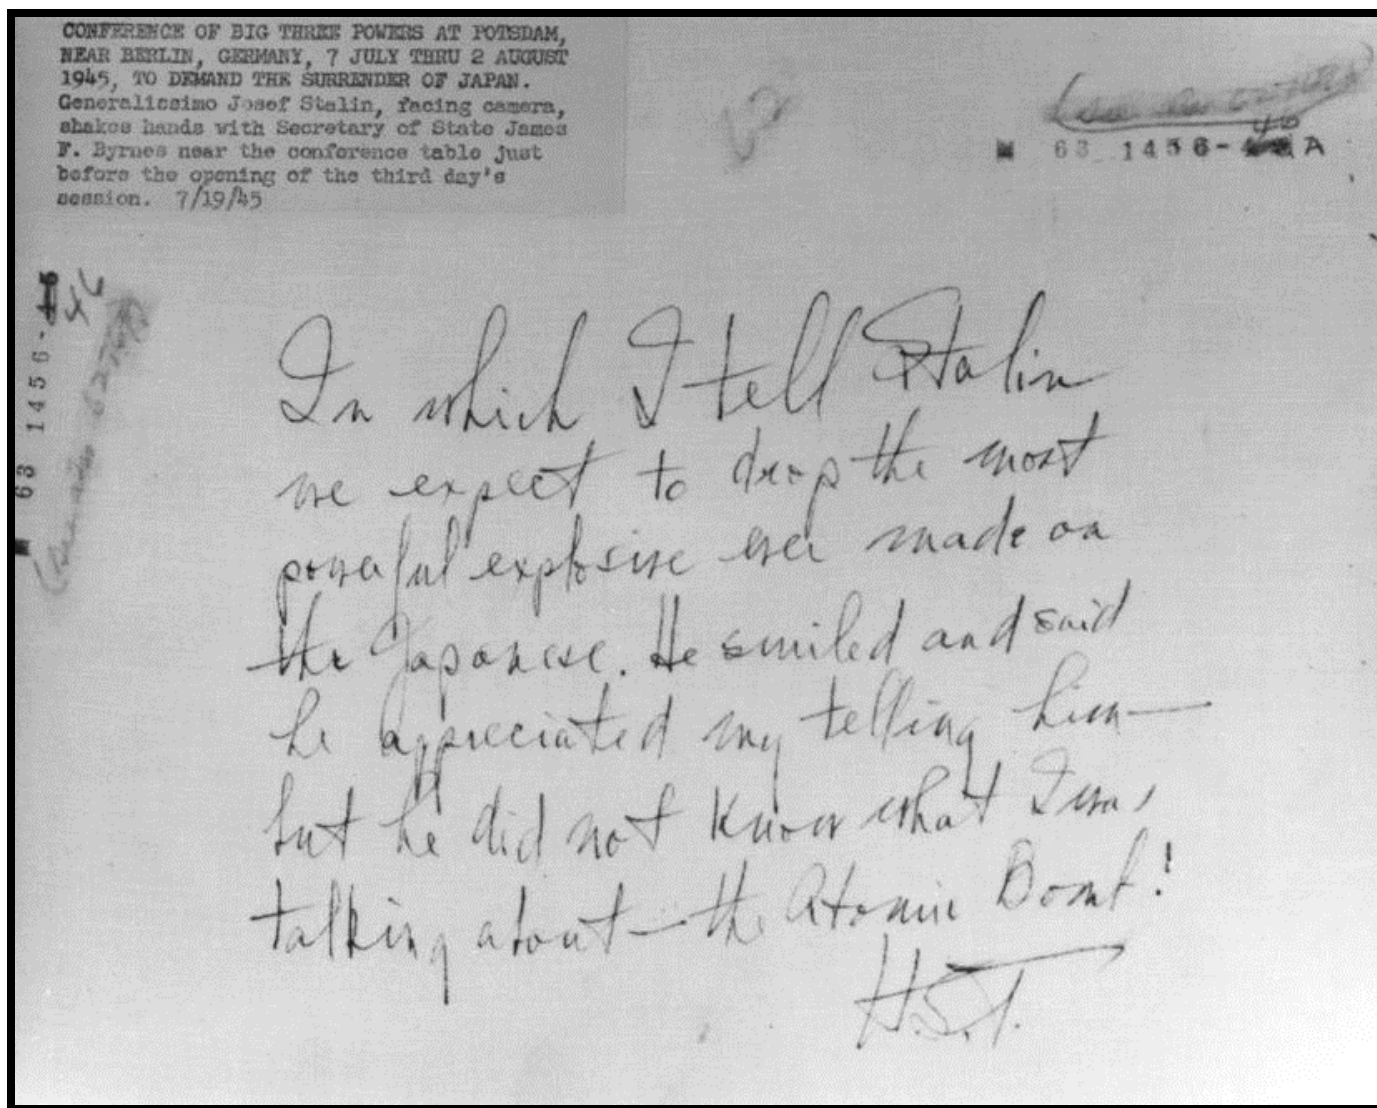 CONFERENCE OF BIG THREE POWERS AT POTSDAM,
NEAR BERLIN, GERMANY, 7 JULY THRU 2 AUGUST
1945, TO DEMAND THE SURRENDER OF JAPAN.
Generalissimo Josef Stalin, facing camera,
shakes hands with Secretary of State James
F. Byrnes near the conference table just
before the opening of the third day's
session. 7/19/45
63 1456-46 A
63 1456-46
In which I tell Stalin
we expect to drop the most
powerful explosive ever made on
the Japanese. He smiled and said
he appreciated my telling him—
but he did not know what I was
talking about—the Atomic Bomb!
H.S.T.